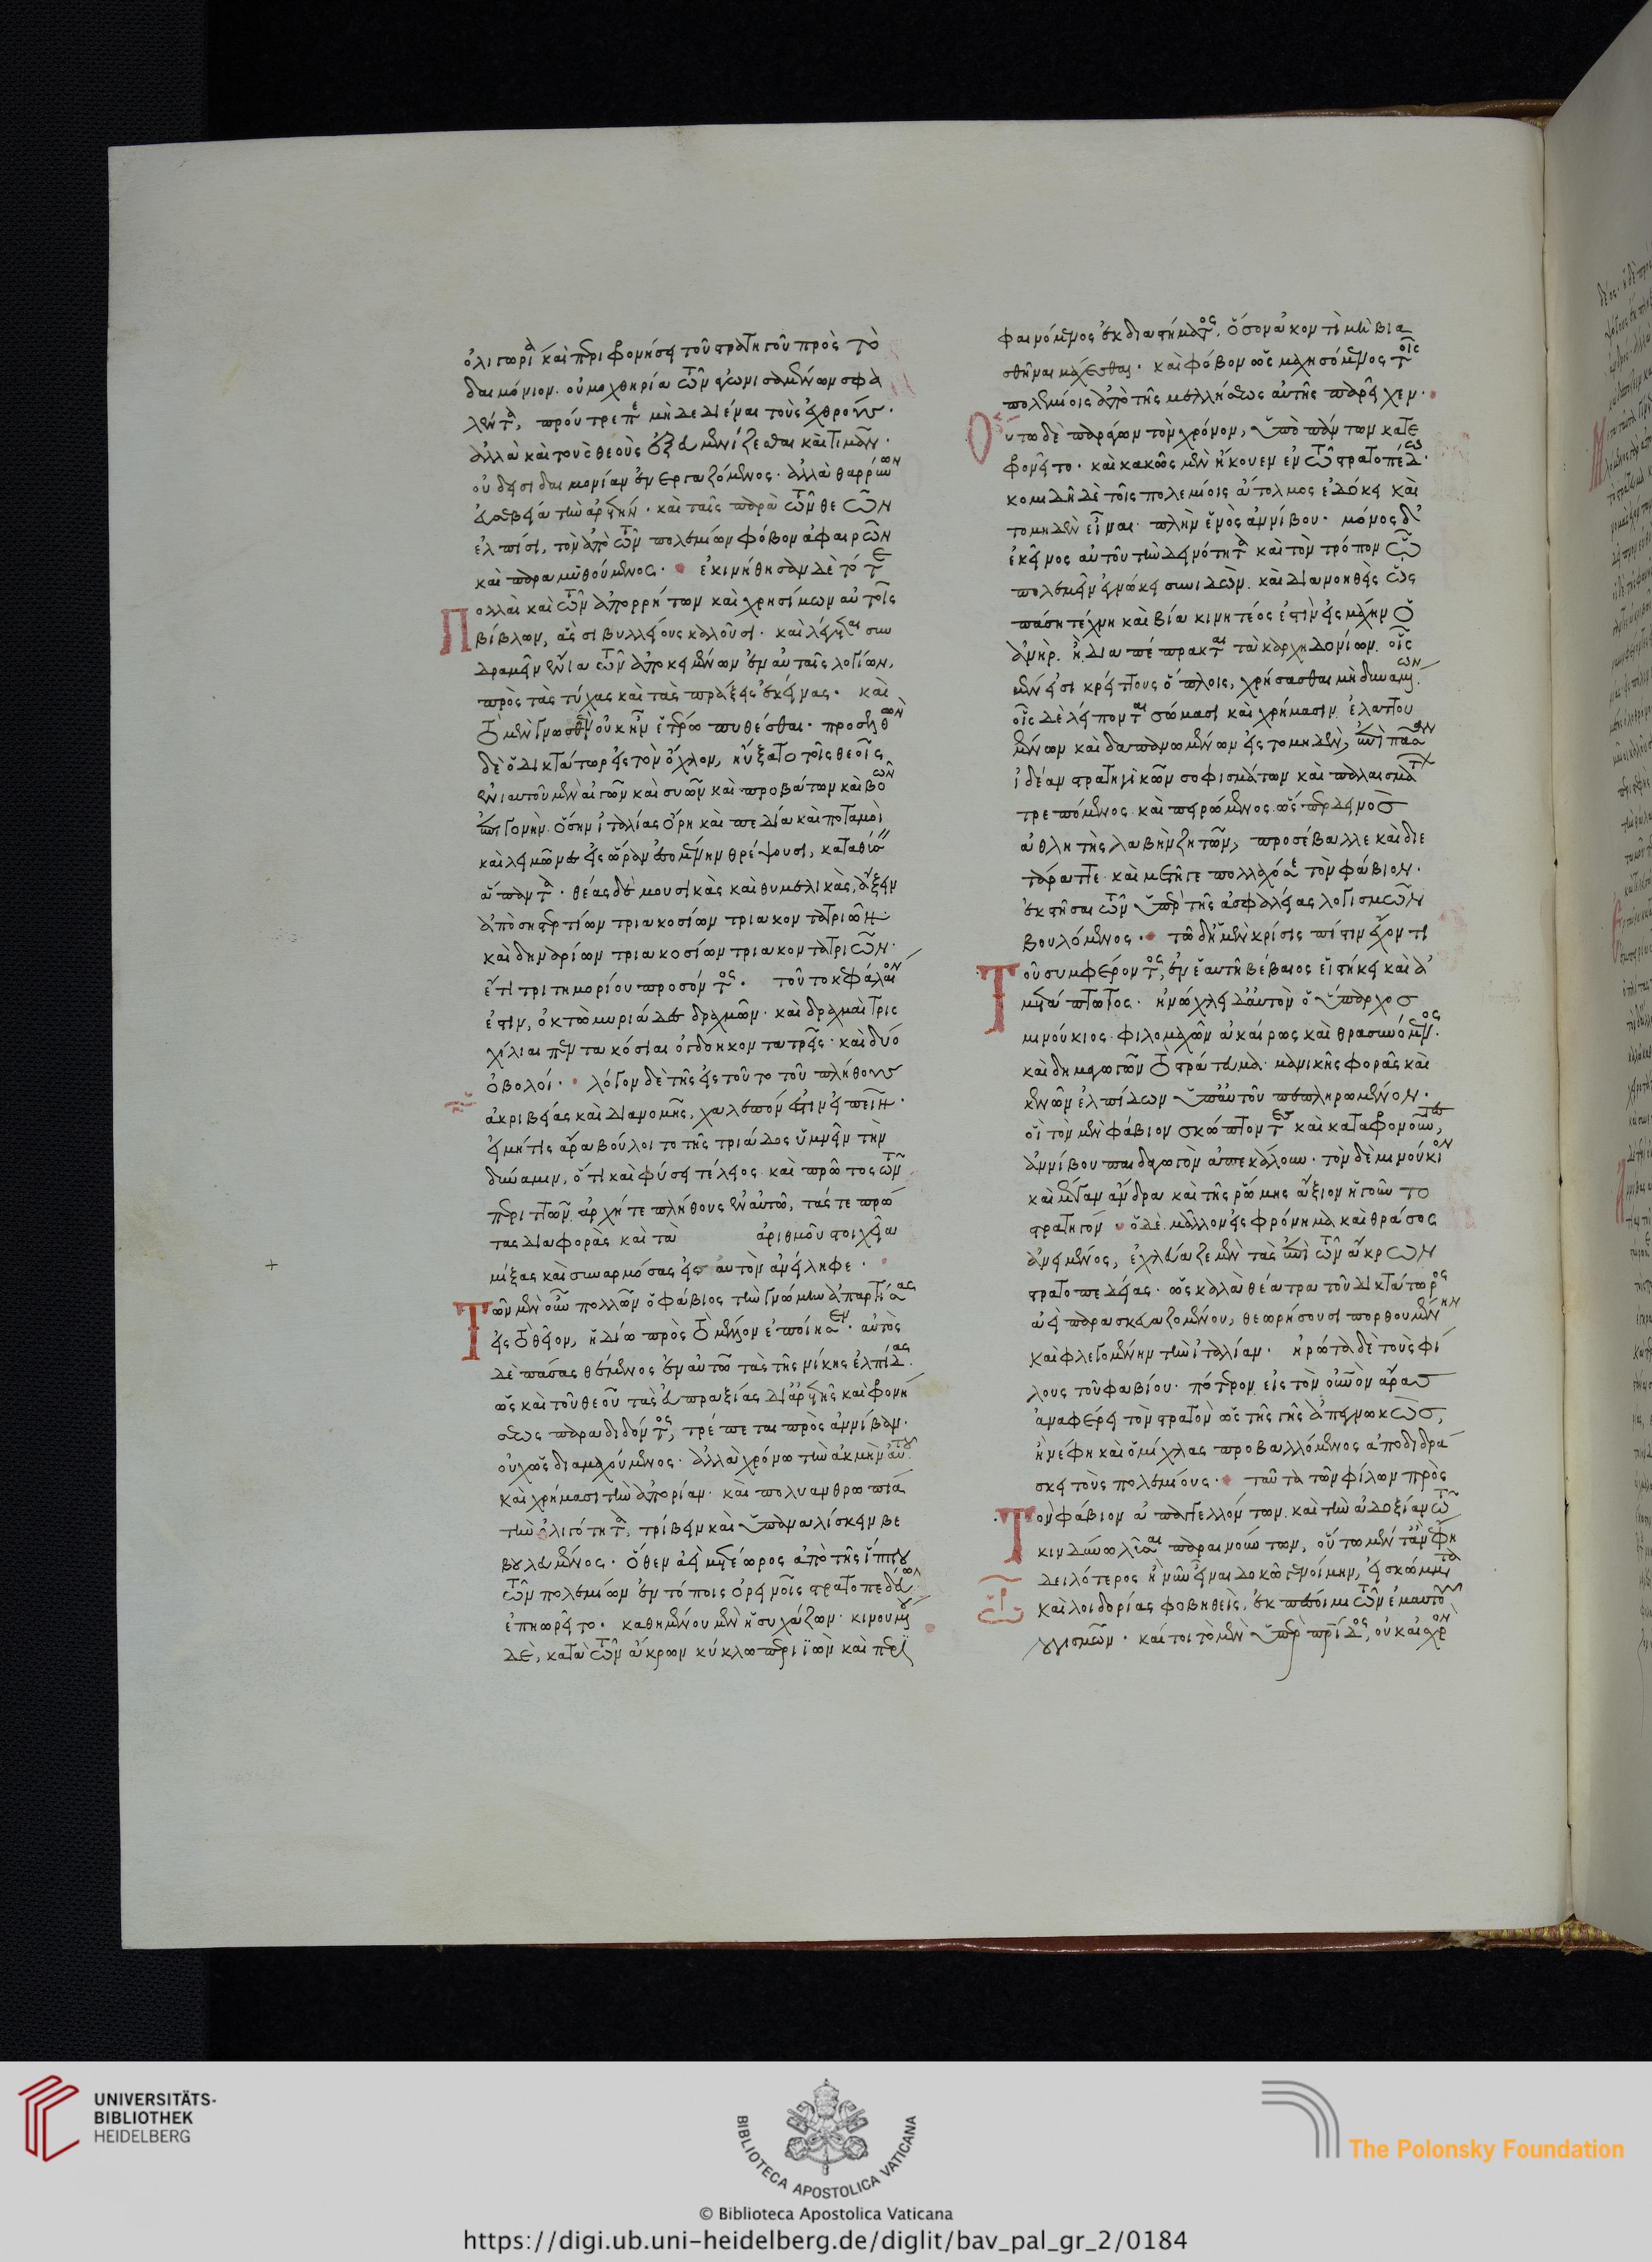 ὀλιγωρίᾳ καὶ περιφρονήσει τοῦ στρατηγοῦ πρὸς τὸ
δαιμόνιον. οὐ μοχθηρία τῶν ἀγωνισαμένων σφα
λέντα, προύτρεπε μὴ δεδιέναι τοὺς ἐχθρούς.
ἀλλὰ καὶ τοὺς θεοὺς ἐξευμενίζεσθαι καὶ τιμᾶν.
οὐ δεισιδαιμονίαν ἐνεργαζόμενος. ἀλλὰ θαρρύνων
εὐσεβεία τὴν ἀρετήν. καὶ ταῖς παρὰ τῶν θεῶν
ἐλπίσι, τὸν ἀπὸ τῶν πολεμίων φόβον ἀφαιρῶν
καὶ παραμυθούμενος. ἐκινήθησαν δὲ τότε
Πολλαὶ καὶ τῶν ἀπορρήτων καὶ χρησίμων αὐτοῖς
βίβλων, ἃς σιβυλλείους καλοῦσι. καὶ λέγεται συν
δραμεῖν ἔνια τῶν ἀποκειμένων ἐν αὐταῖς λογίων,
πρὸς τὰς τύχας καὶ τὰς πράξεις ἐκείνας. καὶ
τὸ μὲν γνωσθὲν οὐκ ἦν ἑτέρω πυθέσθαι. προσελθὼν
δὲ ὁ δικτάτωρ εἰς τὸν ὄχλον, ηὔξατο τοῖς θεοῖς
ἐνιαυτοῦ μὲν αἰγῶν καὶ συῶν καὶ προβάτων καὶ βοῶν
ἐπιγονήν. ὅσην ἰταλίας ὄρη καὶ πεδία καὶ ποταμοὶ
καὶ λειμῶνες εἰς ὥραν ἐσομένην θρέψουσι, καταθύσειν
ἅπαντα. θέας δὲ μουσικὰς καὶ θυμελικὰς, ἄξειν
ἀπὸ σηστερτίων τριακοσίων τριακοντατριῶν
καὶ δηναρίων τριακοσίων τριακοντατριῶν.
ἔτι τριτημορίου προσόντος. τοῦτο κεφάλαιον
ἐστιν, ὀκτὼ μυριάδες δραχμῶν. καὶ δραχμαὶ τρις
χίλιαι πεντακόσιαι ὀγδοηκοντατρεῖς. καὶ δύο
ὀβολοί. λόγον δὲ τῆς εἰς τοῦτο τοῦ πλήθους
ἀκριβείας καὶ διανομῆς, χαλεπόν ἐστιν εἰπεῖν.
εἰ μή τις ἄρα βούλοιτο τῆς τριάδος ὑμνεῖν τὴν
δύναμιν, ὅτι καὶ φύσει τέλειος. καὶ πρῶτος τῶν
περιττῶν. ἀρχή τε πλήθους ἐν αὐτῶ, τάς τε πρώ
τας διαφορὰς καὶ τὰ ἀριθμοῦ στοιχεῖα
μίξας καὶ συναρμόσας εἰς αὐτὸν ἀνείληφε.
Τῶν μὲν οὖν πολλῶν ὁ φάβιος τὴν γνώμην ἀπαρτήσας
εἰς τὸ θεῖον, ἡδίω πρὸς τὸ μέλλον ἐποίησεν. αὐτὸς
δὲ πάσας θέμενος ἐν αὐτῶ τὰς τῆς νίκης ἐλπίδας.
ὡς καὶ τοῦ θεοῦ τὰς εὐπραξίας δι' ἀρετῆς καὶ φρονή
σεως παραδιδόντος, τρέπεται πρὸς ἀννίβαν.
οὐχ ὡς διαμαχούμενος. ἀλλὰ χρόνω τὴν ἀκμὴν αὐτοῦ.
καὶ χρήμασι τὴν ἀπορίαν. καὶ πολυανθρωπία
τὴν ὀλιγότητα, τρίβειν καὶ ὑπαναλίσκειν βε
βουλευμένος. ὅθεν ἀεὶ μετέωρος ἀπὸ τῆς ἵππου
τῶν πολεμίων ἐν τόποις ὀρεινοῖς στρατοπεδεύων
ἐπηωρεῖτο. καθημένου μὲν ἡσυχάζων. κινουμένου
δὲ, κατὰ τῶν ἄκρων κύκλω περιϊὼν καὶ περι
φαινόμενος ἐκ διαστήματος. ὅσον ἄκοντι μὴ βια
σθῆναι μάχεσθαι. καὶ φόβον ὡς μαχησόμενος τοῖς
πολεμίοις ἀπὸ τῆς μελλήσεως αὐτῆς παρέχειν.
Οὕτω δὲ παράγων τὸν χρόνον, ὑπὸ πάντων κατε
φρονεῖτο. καὶ κακῶς μὲν ἤκουεν ἐν τῶ στρατοπέδω.
κομιδῆ δὲ τοῖς πολεμίοις ἄτολμος ἐδόκει καὶ
τομηδὲν εἶναι. πλὴν ἑνὸς ἀννίβου. μόνος δ'
ἐκεῖνος αὐτοῦ τὴν δεινότητα καὶ τὸν τρόπον ᾧ
πολεμεῖν ἐγνώκει συνιδών. καὶ διανοηθεὶς ὡς
πάση τέχνη καὶ βία κινητέος ἐστὶν εἰς μάχην ὁ
ἀνήρ. ἢ διαπέπρακται τὰ καρχηδονίων. οἷς
μέν εἰσι κρείττους ὅπλοις, χρήσασθαι μὴ δυναμένων.
οἷς δὲ λείπονται σώμασι καὶ χρήμασιν. ἐλαττου
μένων καὶ δαπανωμένων εἰς τομηδὲν, ἐπὶ πᾶσαν
ἰδέαν στρατηγικῶν σοφισμάτων καὶ παλαισμάτων
τρεπόμενος. καὶ πειρώμενος ὥσπερ δεινὸς
ἀθλητὴς λαβὴν ζητῶν, προσέβαλλε καὶ διε
τάραττε καὶ μετῆγε πολλαχόσε τὸν φάβιον.
ἐκστῆσαι τῶν ὑπὲρ τῆς ἀσφαλείας λογισμῶν
βουλόμενος. τῶ δὴ μὲν κρίσις πίστιν ἔχοντι
Τοῦ συμφέροντος, ἐν ἑαυτῆ βέβαιος εἱστήκει καὶ ἀ
μετάπτωτος. ἠνώχλει δ' αὐτὸν ὁ ὕπαρχος
μινούκιος. φιλομαχῶν ἀκαίρως καὶ θρασυνόμενος.
καὶ δημαγωγῶν τὸ στράτευμα. μανικῆς φορᾶς καὶ
κενῶν ἐλπίδων ὑπ' αὐτοῦ πεπληρωμένον.
οἳ τὸν μὲν φάβιον σκώπτοντες καὶ καταφρονοῦντες,
ἀννίβου παιδαγωγὸν ἀπεκάλουν. τὸν δὲ μινούκιον
καὶ μέγαν ἄνδρα καὶ τῆς ῥώμης ἄξιον ἡγοῦντο
στρατηγόν. ὁ δὲ μᾶλλον εἰς φρόνημα καὶ θράσος
ἀνειμένος, ἐχλεύαζε μὲν τὰς ἐπὶ τῶν ἄκρων
στρατοπεδείας. ὡς καλὰ θέατρα τοῦ δικτάτωρος
ἀεὶ παρασκευαζομένου, θεωρήσουσι πορθουμένην
καὶ φλεγομένην τὴν ἰταλίαν. ἠρώτα δὲ τοὺς φί
λους τοῦ φαβίου. πότερον εἰς τὸν οὐρανὸν ἄρας
ἀναφέρει τὸν στρατὸν ὡς τῆς γῆς ἀπεγνωκὼς,
ἢ νέφη καὶ ὁμίχλας προβαλλόμενος ἀποδιδρά
σκει τοὺς πολεμίους. ταῦτα τῶν φίλων πρὸς
Τὸν φάβιον ἀπαγγελλόντων. καὶ τὴν ἀδοξίαν τῶ
κινδύνω λῦσαι παραινούντων, οὕτω μέν τ' ἂν ἔφη
δειλότερος ἢ νῦν εἶναι δοκῶ γενοίμην, εἰ σκώμματα
καὶ λοιδορίας φοβηθεὶς, ἐκπέσοιμι τῶν ἐμαυτοῦ λο
γισμῶν. καίτοι τὸ μὲν ὑπὲρ πατρίδος, οὐκ αἰσχρὸν
UNIVERSITÄTS-
BIBLIOTHEK
HEIDELBERG
BIBLIOTECA APOSTOLICA VATICANA
The Polonsky Foundation
© Biblioteca Apostolica Vaticana
https://digi.ub.uni-heidelberg.de/diglit/bav_pal_gr_2/0184